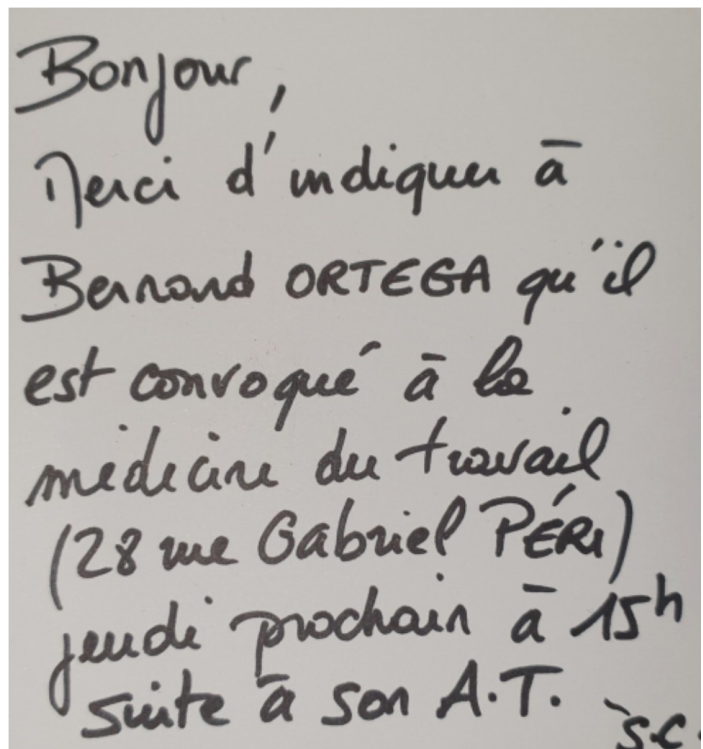 Bonjour,
Merci d'indiquer à
Bernard ORTEGA qu'il
est convoqué à la
médecine du travail
(28 rue Gabriel PÉRI)
jeudi prochain à 15h
suite à son A.T.
S.C.